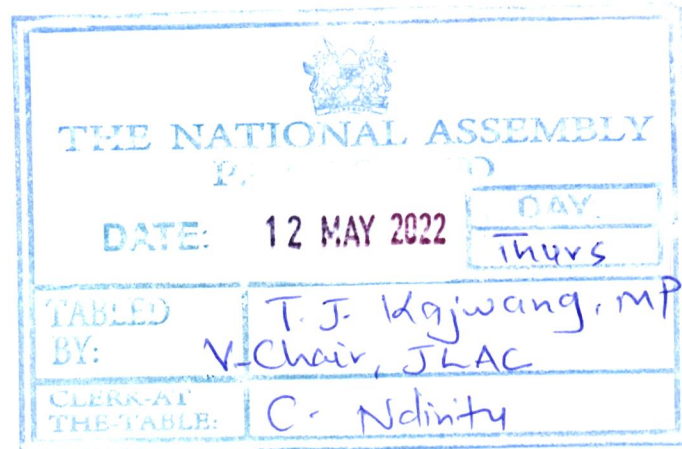 THE NATIONAL ASSEMBLY
DATE: 12 MAY 2022
DAY.
Thurs
TABLED BY: T. J. Kajwang, MP
V-Chair, JLAC
CLERK-AT THE-TABLE: C. Ndirity